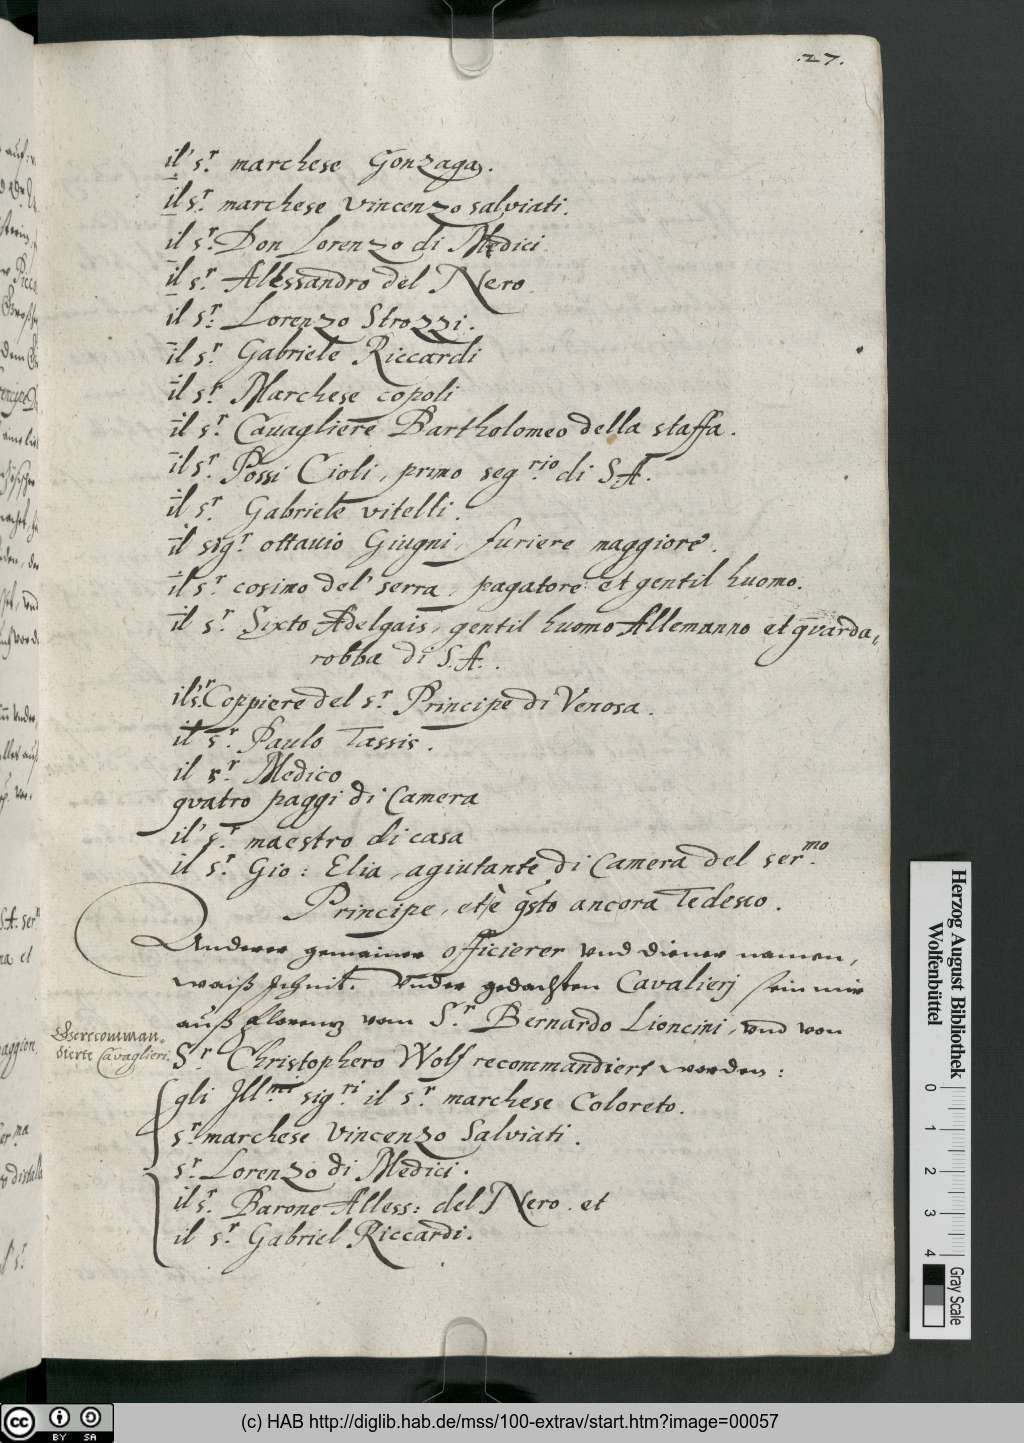 .27.
il' sr. marchese Gonzaga.
il sr. marchese vincenzo salviati.
il sr. Don Lorenzo di Medici.
il sr. Allessandro del Nero.
il sr. Lorenzo Strozzi.
il sr. Gabriele Riccardi
il sr. Marchese copoli
il sr. Cauagliere Bartholomeo della staffa.
il sr. Possi Cioli, primo seg.rio di S.A.
il sr. Gabriele vitelli.
il sigr. ottauio Giugni, furiere maggiore.
il sr. cosimo del' serra, pagatore et gentil huomo.
il sr. Sixto Adelgais, gentil huomo Allemanno et guarda,
robba di S.A..
il sr. Coppiere del sr. Principe di Venosa.
il sr. Paulo Tassis.
il sr. Medico
quatro paggi di Camera
il' sr. maestro di casa
il sr. Gio: Elia, agiutante di Camera del ser.mo
Principe, et è qsto ancora Tedesco.
Anderer gemainer officierer vnd diener namen,
waiß Ich nit. Vnder gedachten Cavalierj sein mir
auß Florenz vom Sr. Bernardo Lioncini, vnd von
Sr. Christophero Wolf recommandiert worden:
recomman,
dierte Cavaglieri.
gli Ill.mi sig.ri il sr. marchese Coloreto.
sr. marchese Vincenzo Salviati.
sr. Lorenzo di Medici.
il sr. Barone Alless: del Nero. et
il sr. Gabriel Riccardi.
Herzog August Bibliothek
Wolfenbüttel
0 1 2 3 4
Gray Scale
cc BY SA
(c) HAB http://diglib.hab.de/mss/100-extrav/start.htm?image=00057